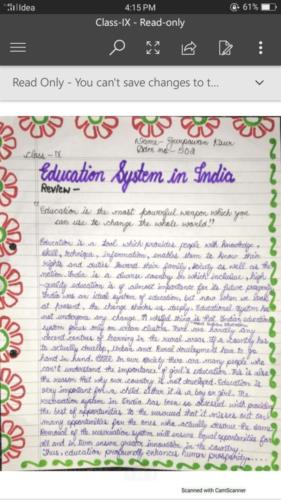 Idea
4:15 PM
61%
Class-IX - Read-only
Read Only - You can't save changes to t...
Name- Gurpawan Kaur
Adm no- 502
Class - IX
Education System in India
REVIEW -
"Education is the most powerful weapon which you
can use to change the whole world"!
Education is a tool which provides people with knowledge,
skill, technique, information, enables them to know their
rights and duties toward their family, society as well as the
nation. India is a diverse country in which inclusive, high
-quality education is of utmost importance for its future prosperity.
India was an ideal system of education, but now when we look
at present, the change shocks us deeply. Educational system has
not undergone any change.
system focus only on urban There are hardly any
decent centres of learning in the rural areas. If a country has
to actually develop, Urban and Rural development have to go
hand in hand. In our society there are many people who
can't understand the importance of girl's education. This is also
the reason that why our country is not developed. Education is
very important for a child either it is a boy or girl. The
reservation system in India has been so obsessed with providing
the best of opportunities to the reserved that it misses out on
many opportunities for the ones who actually deserve the same.
Removal of the reservation system will ensure equal opportunities for
all and in turn ensure greater innovation in the country.
Thus, education profoundly enhances human prosperity....
Scanned with CamScanner